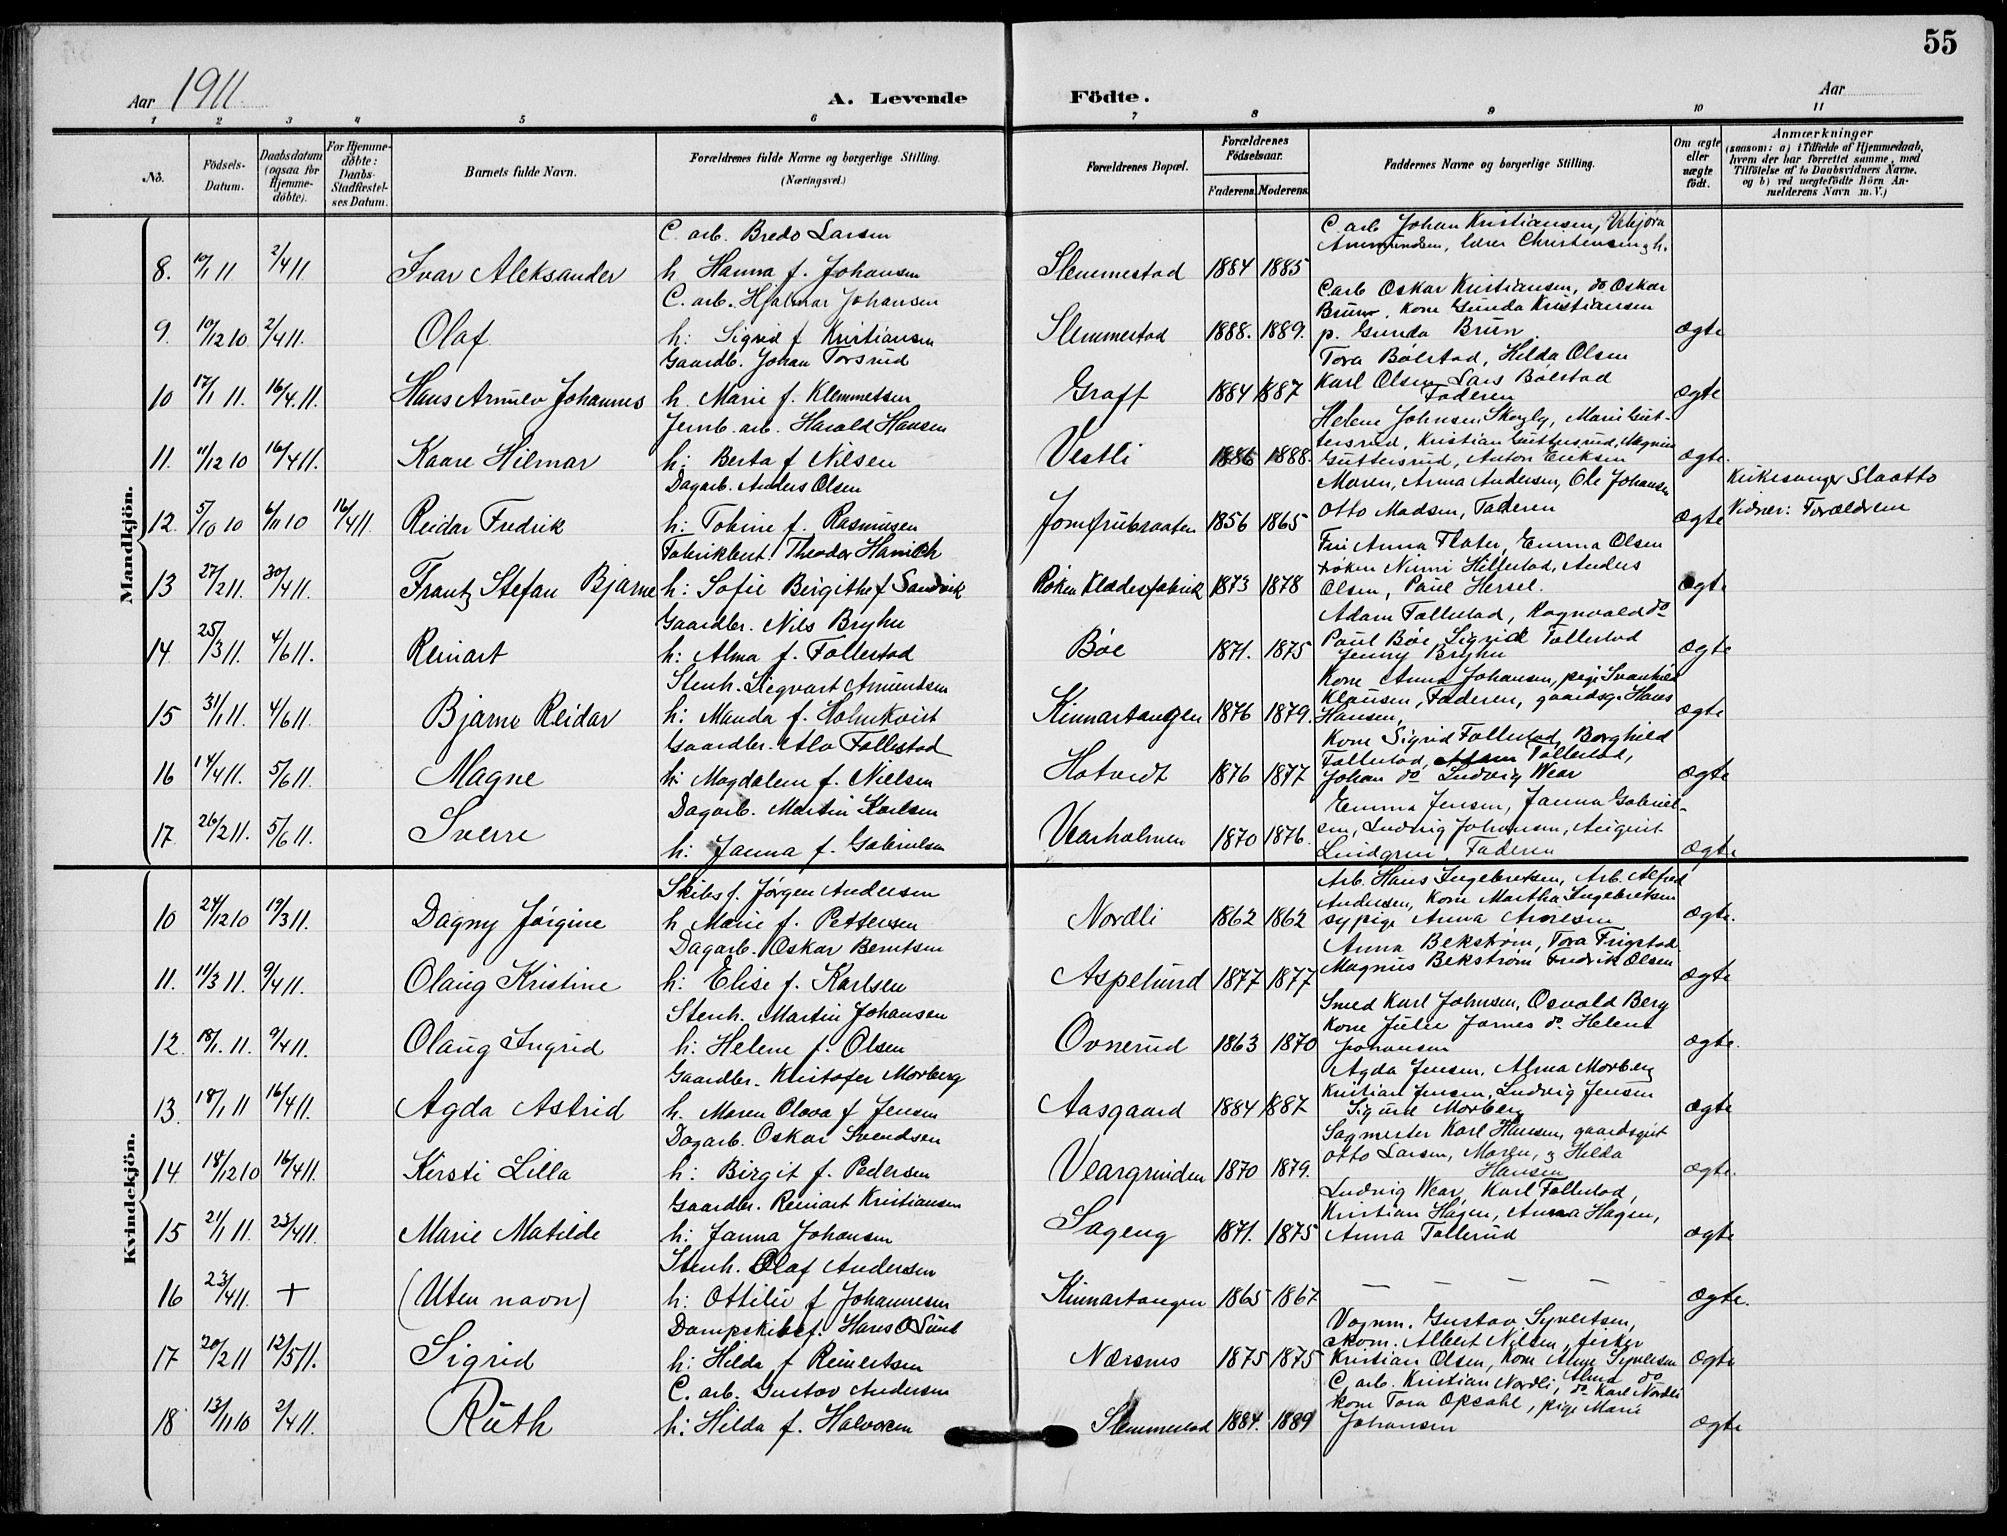 55
Aar 1911.
A. Levende
Födte.
Aar
1 2 3 4 5 6 7 8 9 10 11
No.
Födsels-Datum.
Daabsdatum (ogsaa for Hjemme-döbte).
For Hjemme-döbte: Daabs-Stadfæstel-ses Datum.
Barnets fulde Navn.
Forældrenes fulde Navne og borgerlige Stilling. (Næringsvei.)
Forældrenes Bopæl.
Forældrenes Födselsaar.
Faderens. Moderens.
Faddernes Navne og borgerlige Stilling.
Om ægte eller uægte födt.
Anmærkninger (saasom: a) i Tilfælde af Hjemmedaab, hvem der har forrettet samme, med Tilföielse af to Daabsvidners Navne, og b) ved uægtefödte Börn An-melderens Navn m. V.)
Mandkjön.
C. arb. Bredo Larsen
C arb Johan Kristiansen,
Ammundsen, lærer Christensen & h.
8. 10/1 11 2/4 11 Ivar Aleksander h. Hanna f. Johansen Slemmestad 1884 1885
C. arb. Hjalmar Johansen
C arb Oskar Kristiansen, do Oskar
Brun, Kone Gunda Kristiansen
9. 10/12 10 2/4 11. Olaf h: Sigrid f Kristiansen Slemmestad 1888. 1889. p. Gunda Brun ægte
Gaardb. Johan Torsrud
Tora Bølstad, Hilda Olsen
Karl Olsen Lars Bølstad
10 17/1 11. 16/4. 11. Hans Arnulv Johannes h. Marie f. Klemmetsen Graff 1884 1887 Faderen ægte
Jernb. arb. Harald Hansen
Helene Johnsen Skogly, Marie Gut-
tersrud, Kristian Guttersrud, Magnus
11. 11/12 10 16/4 11. Kaare Hilmar h: Berta f Nilsen Vestli 1886 1888. Guttersrud, Anton Eriksen ægte.
Dagarb. Anders Olsen
Maren, Anna Andersen, Ole Johansen
Kirkesanger Slaatto
12. 5/10 10 6/11 10 16/4 11. Reidar Fredrik h: Tobine f. Rasmusen Jomfrubraaten 1856 1865 Otto Madsen, Faderen ægte Vidner: Forældrene
Fabrikbest. Theodor Hanich
Fru Anna Flater, Emma Olsen
frøken Nimi Hillestad, Anders
13 27/2 11. 30/4 11. Frantz Stefan Bjarne h: Sofie Birgithe f Sandvik Røken Klædesfabrik 1873 1878 Olsen, Paul Hersel. ægte
Gaardbr. Nils Bryhn
Adam Follestad, Ragnvald do
Paul Bøe, Sigrid Follestad
14. 25/3 11. 4/6 11. Reinart h: Alma f. Follestad Bøe 1871. 1875 Jenny Bryhn ægte
Stenh. Siegvart Amundsen
Kone Anna Johansen, pige Svanhild
Klausen, Faderen, gaardsg. Hans
15 31/1 11. 4/6 11. Bjarne Reidar h: Manda f. Holmkvist Kinnartangen 1876 1879. Hansen, ægte
Gaardbr. Alv Follestad
Kone Sigrid Follestad, Borghild
Follestad, Adam Follestad,
16 14/4 11. 5/6 11. Magne h: Magdalene f. Nielsen Hotvedt 1876 1877 Johan do Ludvig Wear ægte
Dagarb. Martin Karlsen
Emma Jensen, Janna Gabriel-
sen, Ludvig Johansen, August
17. 26/2 11. 5/6 11. Sverre h: Janna f. Gabrielsen Vearholmen 1870 1876. Lindgren, Faderen ægte
Kvindekjön.
Skibsf. Jørgen Andersen
Arb. Hans Ingebretsen, Arb. Alfred
Andersen, Kone Martha Ingebretsen
10 24/12 10 19/3 11. Dagny Jørgine h Marie f. Pettersen Nordli 1862 1862 sypige Anna Arnesen ægte.
Dagarb. Oskar Berntsen
Anna Bekstrøm, Tora Frigstad
11. 11/3 11. 9/4 11. Olaug Kristine h: Elise f. Karlsen Aspelund 1877 1877 Magnus Bekstrøm Fredrik Olsen ægte
Stenh. Martin Johansen
Smed Karl Johnsen, Osvald Berg
Kone Julie Jarnes do. Helene
12. 18/1. 11. 9/4 11. Olaug Ingrid h: Helene f. Olsen Ovnerud 1863 1870 Johansen ægte.
Gaardbr. Kristofer Morberg
Agda Jensen, Alma Morberg
Kristian Jensen, Ludvig Jensen
13. 18/1 11 16/4 11. Agda Astrid h. Maren Olava f Jensen Aasgaard 1884 1887 Sigurd Morberg ægte
Dagarb. Oskar Svendsen
Sagmester Karl Hansen, gaardsgut
Otto Larsen, Maren, & Hilda
14 18/12 10 16/4 11. Kirsti Lilla h: Birgit f. Pedersen Veargrinden 1870 1879. Hansen ægte.
Gaardbr. Reinart Kristiansen
Ludvig Wear, Karl Follestad,
Kristian Hagen, Anna Hagen,
15 21/1 11. 23/4 11. Marie Matilde h: Janna Johansen Sageng 1871. 1875 Anna Tollerud ægte
Stenh. Olaf Andersen
16 23/4 11. + (Uten navn) h: Ottilie f Johannesen Kinnartangen 1865 1867 — — — — — ægte.
Dampskibsf. Hans O Sund
Vognm. Gustav Syvertsen,
skom. Albert Nilsen, fisker
17 20/2 11 12/5 11. Sigrid h: Hilda f Reinertsen Nærsnes 1875 1875 Kristian Olsen, kone Syversen ægte
C. arb. Gustav Andersen
C arb. Kristian Nordli, Alma do do Karl Nordli
kone Tora Opsahl, pige Marie
18 13/11 10 2/4 11. Ruth h: Hilda f. Halvorsen Slemmestad 1884. 1889 Johansen ægte